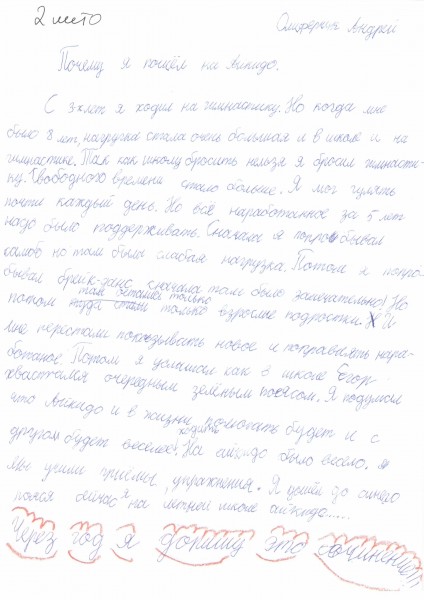 2 место
Олиферчик Андрей
Почему я пошёл на Айкидо.
С 3х лет я ходил на гимнастику. Но когда мне
было 8 лет, нагрузка стала очень большая и в школе и на
гимнастике. Так как школу бросить нельзя я бросил гимнасти-
ку. Свободного времени стало больше. Я мог гулять
почти каждый день. Но всё наработанное за 5 лет
надо было поддерживать. Сначала я попробывал
самбо но там была слабая нагрузка. Потом я попро-
бывал брейк-данс, сначала там было замечательно! Но
потом там остались только взрослые подростки. И
мне перестали показывать новое и поправлять нара-
ботаное. Потом я услышал как в школе Егор
хвастался очередным зелёным поясом. Я подумал
что Айкидо и в жизни помогать будет и с
другом ходить будет веселее. На айкидо было весело.
мы учили приёмы, упражнения. Я дошёл до синего
пояса сейчас я на летней школе айкидо......
Через год я допишу это сочинение!!!